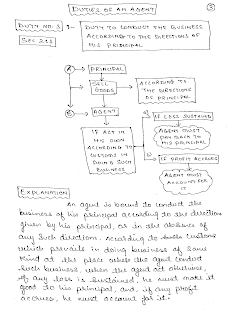 DUTIES OF AN AGENT
3
DUTY NO. 1
SEC 211
DUTY TO CONDUCT THE BUSINESS
ACCORDING TO THE DIRECTIONS
OF HIS PRINCIPAL
PRINCIPAL
SELL
GOODS
ACCORDING TO
THE DIRECTIONS
OF PRINCIPAL
AGENT
IF LOSS SUSTAINED
AGENT MUST
PAY BACK TO
HIS PRINCIPAL
IF ACT IN
HIS OWN
ACCORDING TO
CUSTOMS IN
DOING SUCH
BUSINESS
IF PROFIT ACCRUES
AGENT MUST
ACCOUNT FOR
IT
EXPLANATION
An agent is bound to conduct the
business of his principal according to the direction
given by his principal, or in the absence of
any such direction, according to such customs
which prevails in doing business of same
kind at the place where the agent conduct
such business, when the agent act otherwise,
if any loss is sustained, he must make it
good to his principal, and, if any profit
accrues, he must account for it.